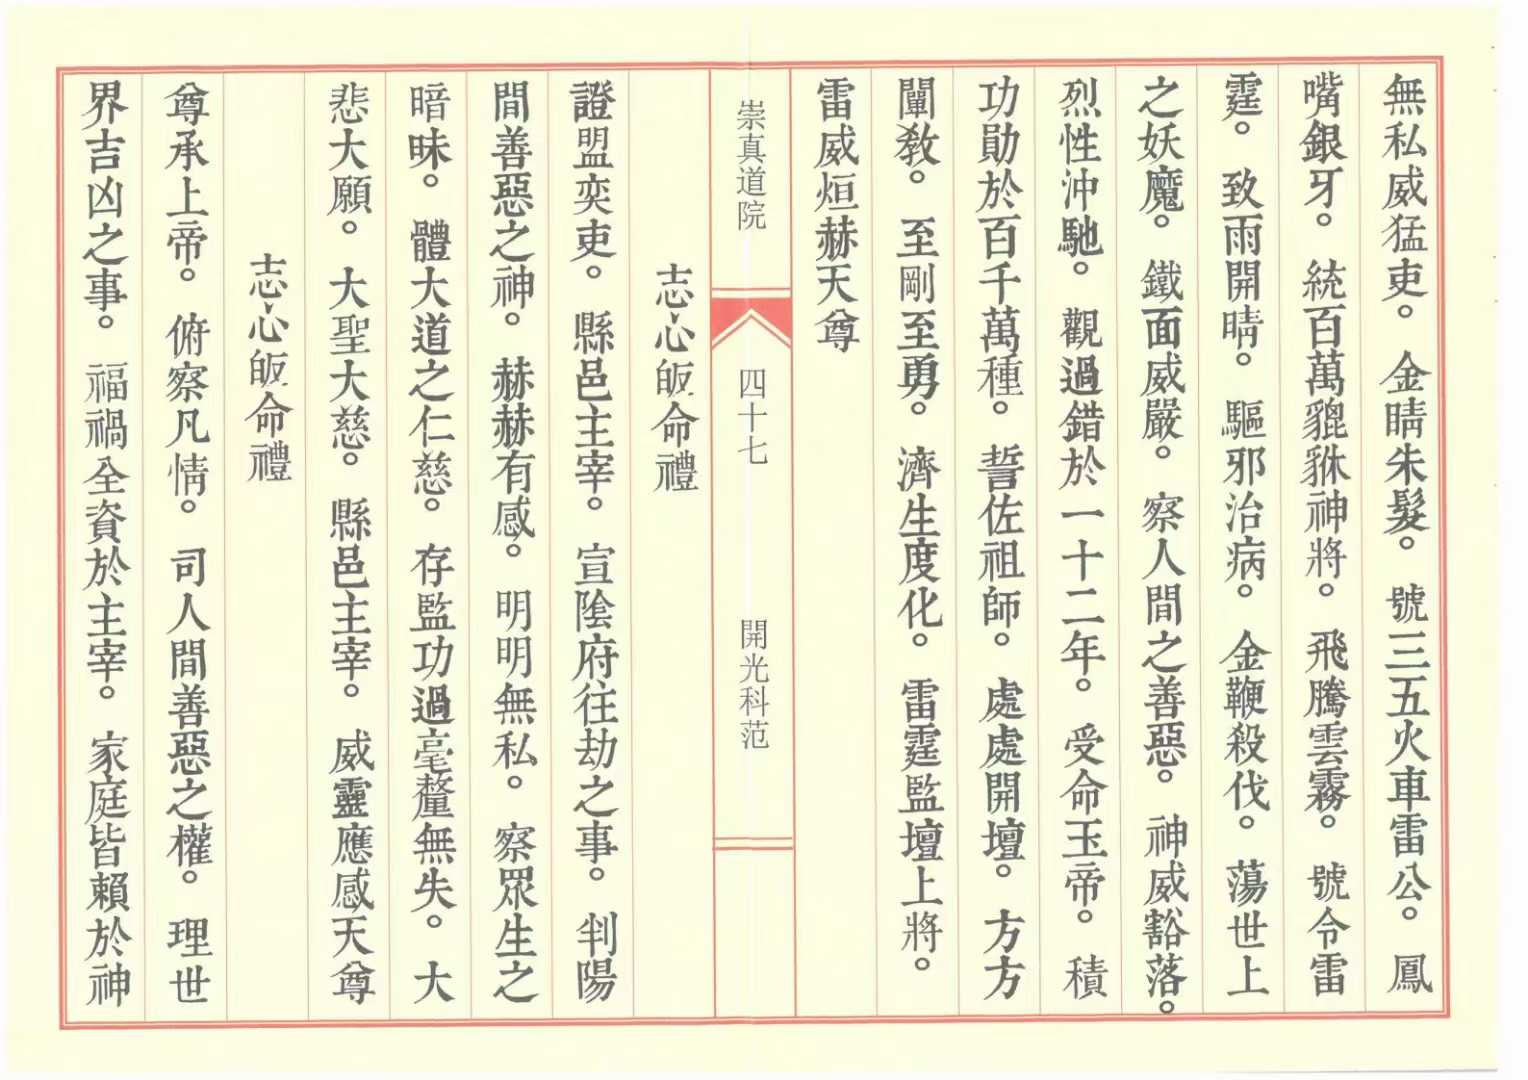 無私威猛吏。金睛朱髮。號三五火車雷公。鳳
嘴銀牙。統百萬貔貅神將。飛騰雲霧。號令雷
霆。致雨開晴。驅邪治病。金鞭殺伐。蕩世上
之妖魔。鐵面威嚴。察人間之善惡。神威豁落。
烈性沖馳。觀過錯於一十二年。受命玉帝。積
功勛於百千萬種。誓佐祖師。處處開壇。方方
闡教。至剛至勇。濟生度化。雷霆監壇上將。
雷威烜赫天尊
崇真道院
四十七
開光科范
志心皈命禮
證盟奕吏。縣邑主宰。宣陰府往劫之事。判陽
間善惡之神。赫赫有感。明明無私。察眾生之
暗昧。體大道之仁慈。存監功過毫釐無失。大
悲大願。大聖大慈。縣邑主宰。威靈應感天尊
志心皈命禮
尊承上帝。俯察凡情。司人間善惡之權。理世
界吉凶之事。福禍全資於主宰。家庭皆賴於神